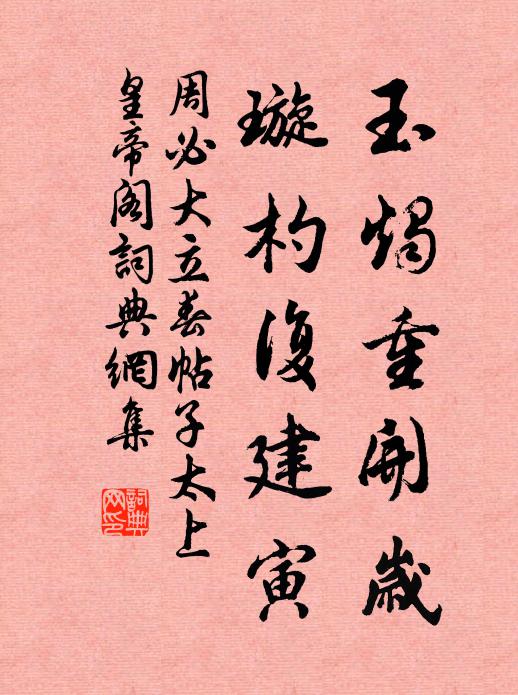 玉燭重開歲
璇杓復建寅
周必大立春帖子太上
皇帝閣詞典網集
詞典網印